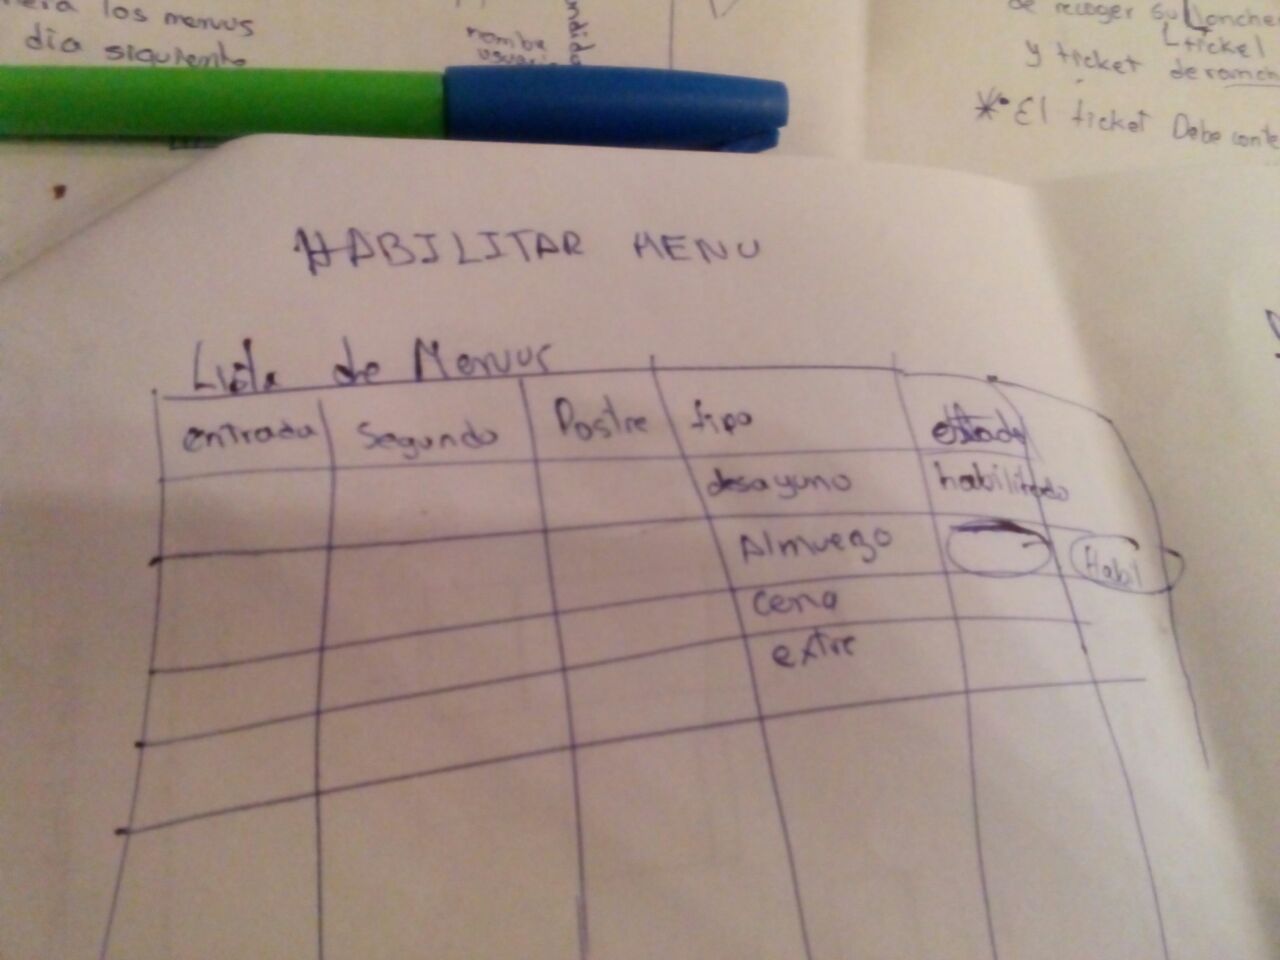 los menus
día siguiente
nombre
de recoger su Lonche
ticket
y ticket de
* El ticket Debe conte
HABILITAR MENU
Lista de Menus
entrada segundo Postre tipo estado
desayuno habilitado
Almuezo Habil
cena
extre